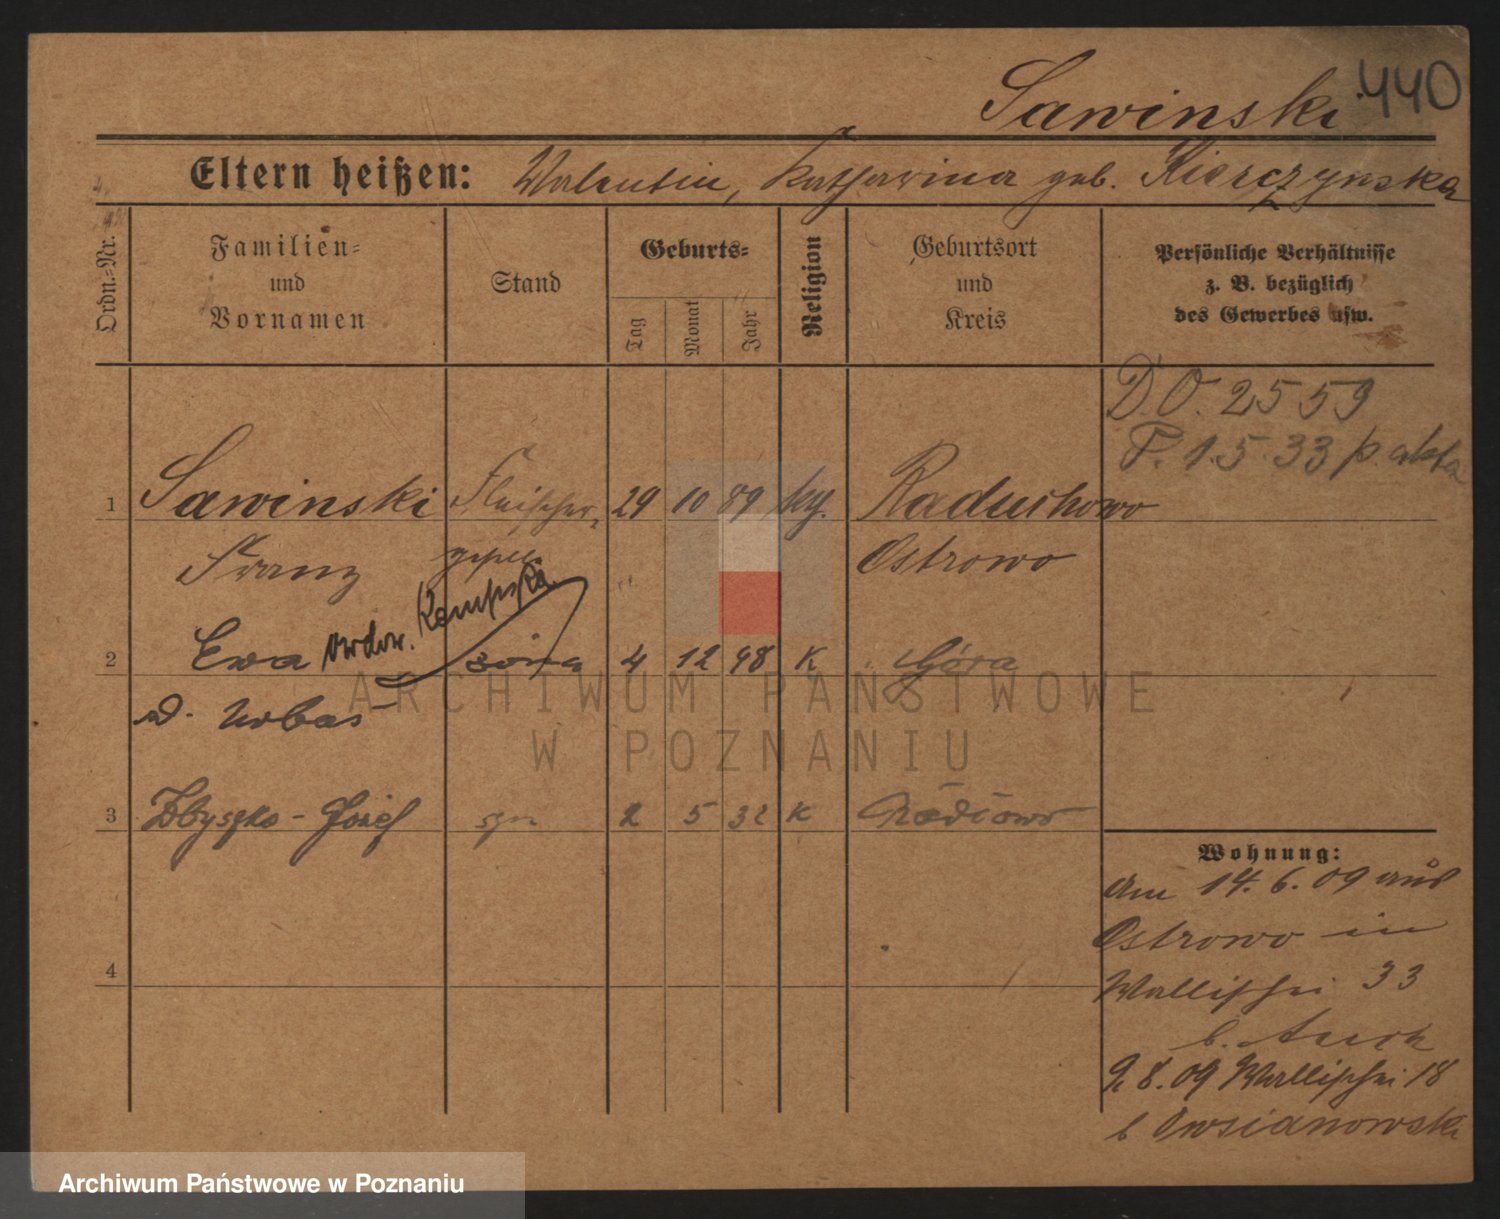 Sawinski 440
Eltern heißen: Valentin, Katharina geb. Kierczynska
Ordn.-Nr.
Familien-
und
Vornamen
Stand
Geburts-
Tag
Monat
Jahr
Religion
Geburtsort
und
Kreis
Persönliche Verhältnisse
z. B. bezüglich
des Gewerbes usw.
D.O. 2559
P. 1.5.33 p. akta
1 Sawinski Fleischer- 29 10 89 Raduchowo
Franz gesell Ostrowo
2 Ewa żona 4 12 98 K Góra
d. Urbas
3 Zbyszko-Józef syn 2 5 32 K
4
Wohnung:
Am 14.6.09 aus
Ostrowo in
Wallischei 33
b.
9 8.09 Wallischei 18
b Owsianowski
ARCHIWUM PAŃSTWOWE
W POZNANIU
Archiwum Państwowe w Poznaniu